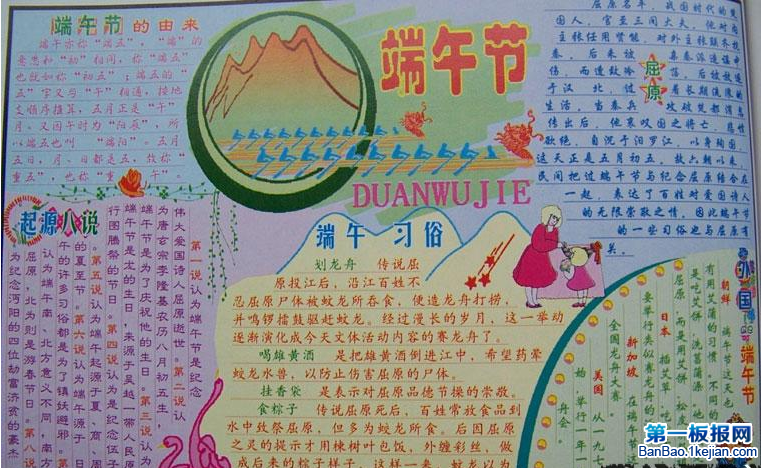 端午节的由来
端午亦称“端五”，“端”的
意思和“初”相同，称“端五”
也就如称“初五”；端五的“
五”字又与“午”相通，按地
支顺序推算，五月正是“午”
月。又因午时为“阳辰”，所
以端五也叫“端阳”。五月
五日，月、日都是五，故称
重五”，也称“重午”。
端午节
DUANWUJIE
屈原
官至三闾大夫，他对内
主张任用贤能，对外主张联齐抗
秦，后来被
伤，而遭致
于汉北，
生活，当秦兵攻破楚都
传出后，他哀叹国之将亡，悲愤
欲绝，自沉于汨罗江，以身殉国。
这天正是五月初五，故六朝以来，
民间把过端午节与纪念屈原结合在
一起，表达了百姓对爱国诗人
的无限崇敬之情，因此端午节
的一些习俗也与屈原有
关。
起源八说
第一说认为端午节是纪念
伟大爱国诗人屈原逝世。第二说认
为唐玄宗李隆基农历八月初五生，
端午节是为了庆祝他的生日。第三说认为
端午节是龙的生日，来源于吴越一带人民原
行图腾祭的节日。第四说认为是纪念伍子
。第五说认为端午起源于夏、商、周
的夏至节。第六说认为端午源于
午的许多习俗都是为了镇妖避邪。
认为端午南、北方意义不同，南方
屈原，北为则是游春节日。第八说
为纪念沔阳的四位劫富济贫的豪杰
端午习俗
划龙舟 传说屈
原投江后，沿江百姓不
忍屈原尸体被蛟龙所吞食，便造龙舟打捞，
并鸣锣擂鼓驱赶蛟龙。经过漫长的岁月，这一举动
逐渐演化成今天文体活动内容的赛龙舟了。
喝雄黄酒 是把雄黄酒倒进江中，希望药晕
蛟龙水兽，以防止伤害屈原的尸体。
挂香袋 是表示对屈原品德节操的崇敬。
食粽子 传说屈原死后，百姓常放食品到
水中致祭屈原，但多为蛟龙所食。后因屈原
之灵的提示才用楝树叶包饭，外缠彩丝，做
成后来的粽子样子，这样一来，蛟龙以为
外国端午节
朝鲜 端午节这天也
有用艾蒲的习
是吃艾饼、洗菖蒲汤
屈原，而是用艾
日本 插艾草、吃
要举行类似赛龙舟的
新加坡 在端
全国龙舟大赛。
美国 从一九
始，举行一年
丹会
第一板报网
BanBao.1kejian.com